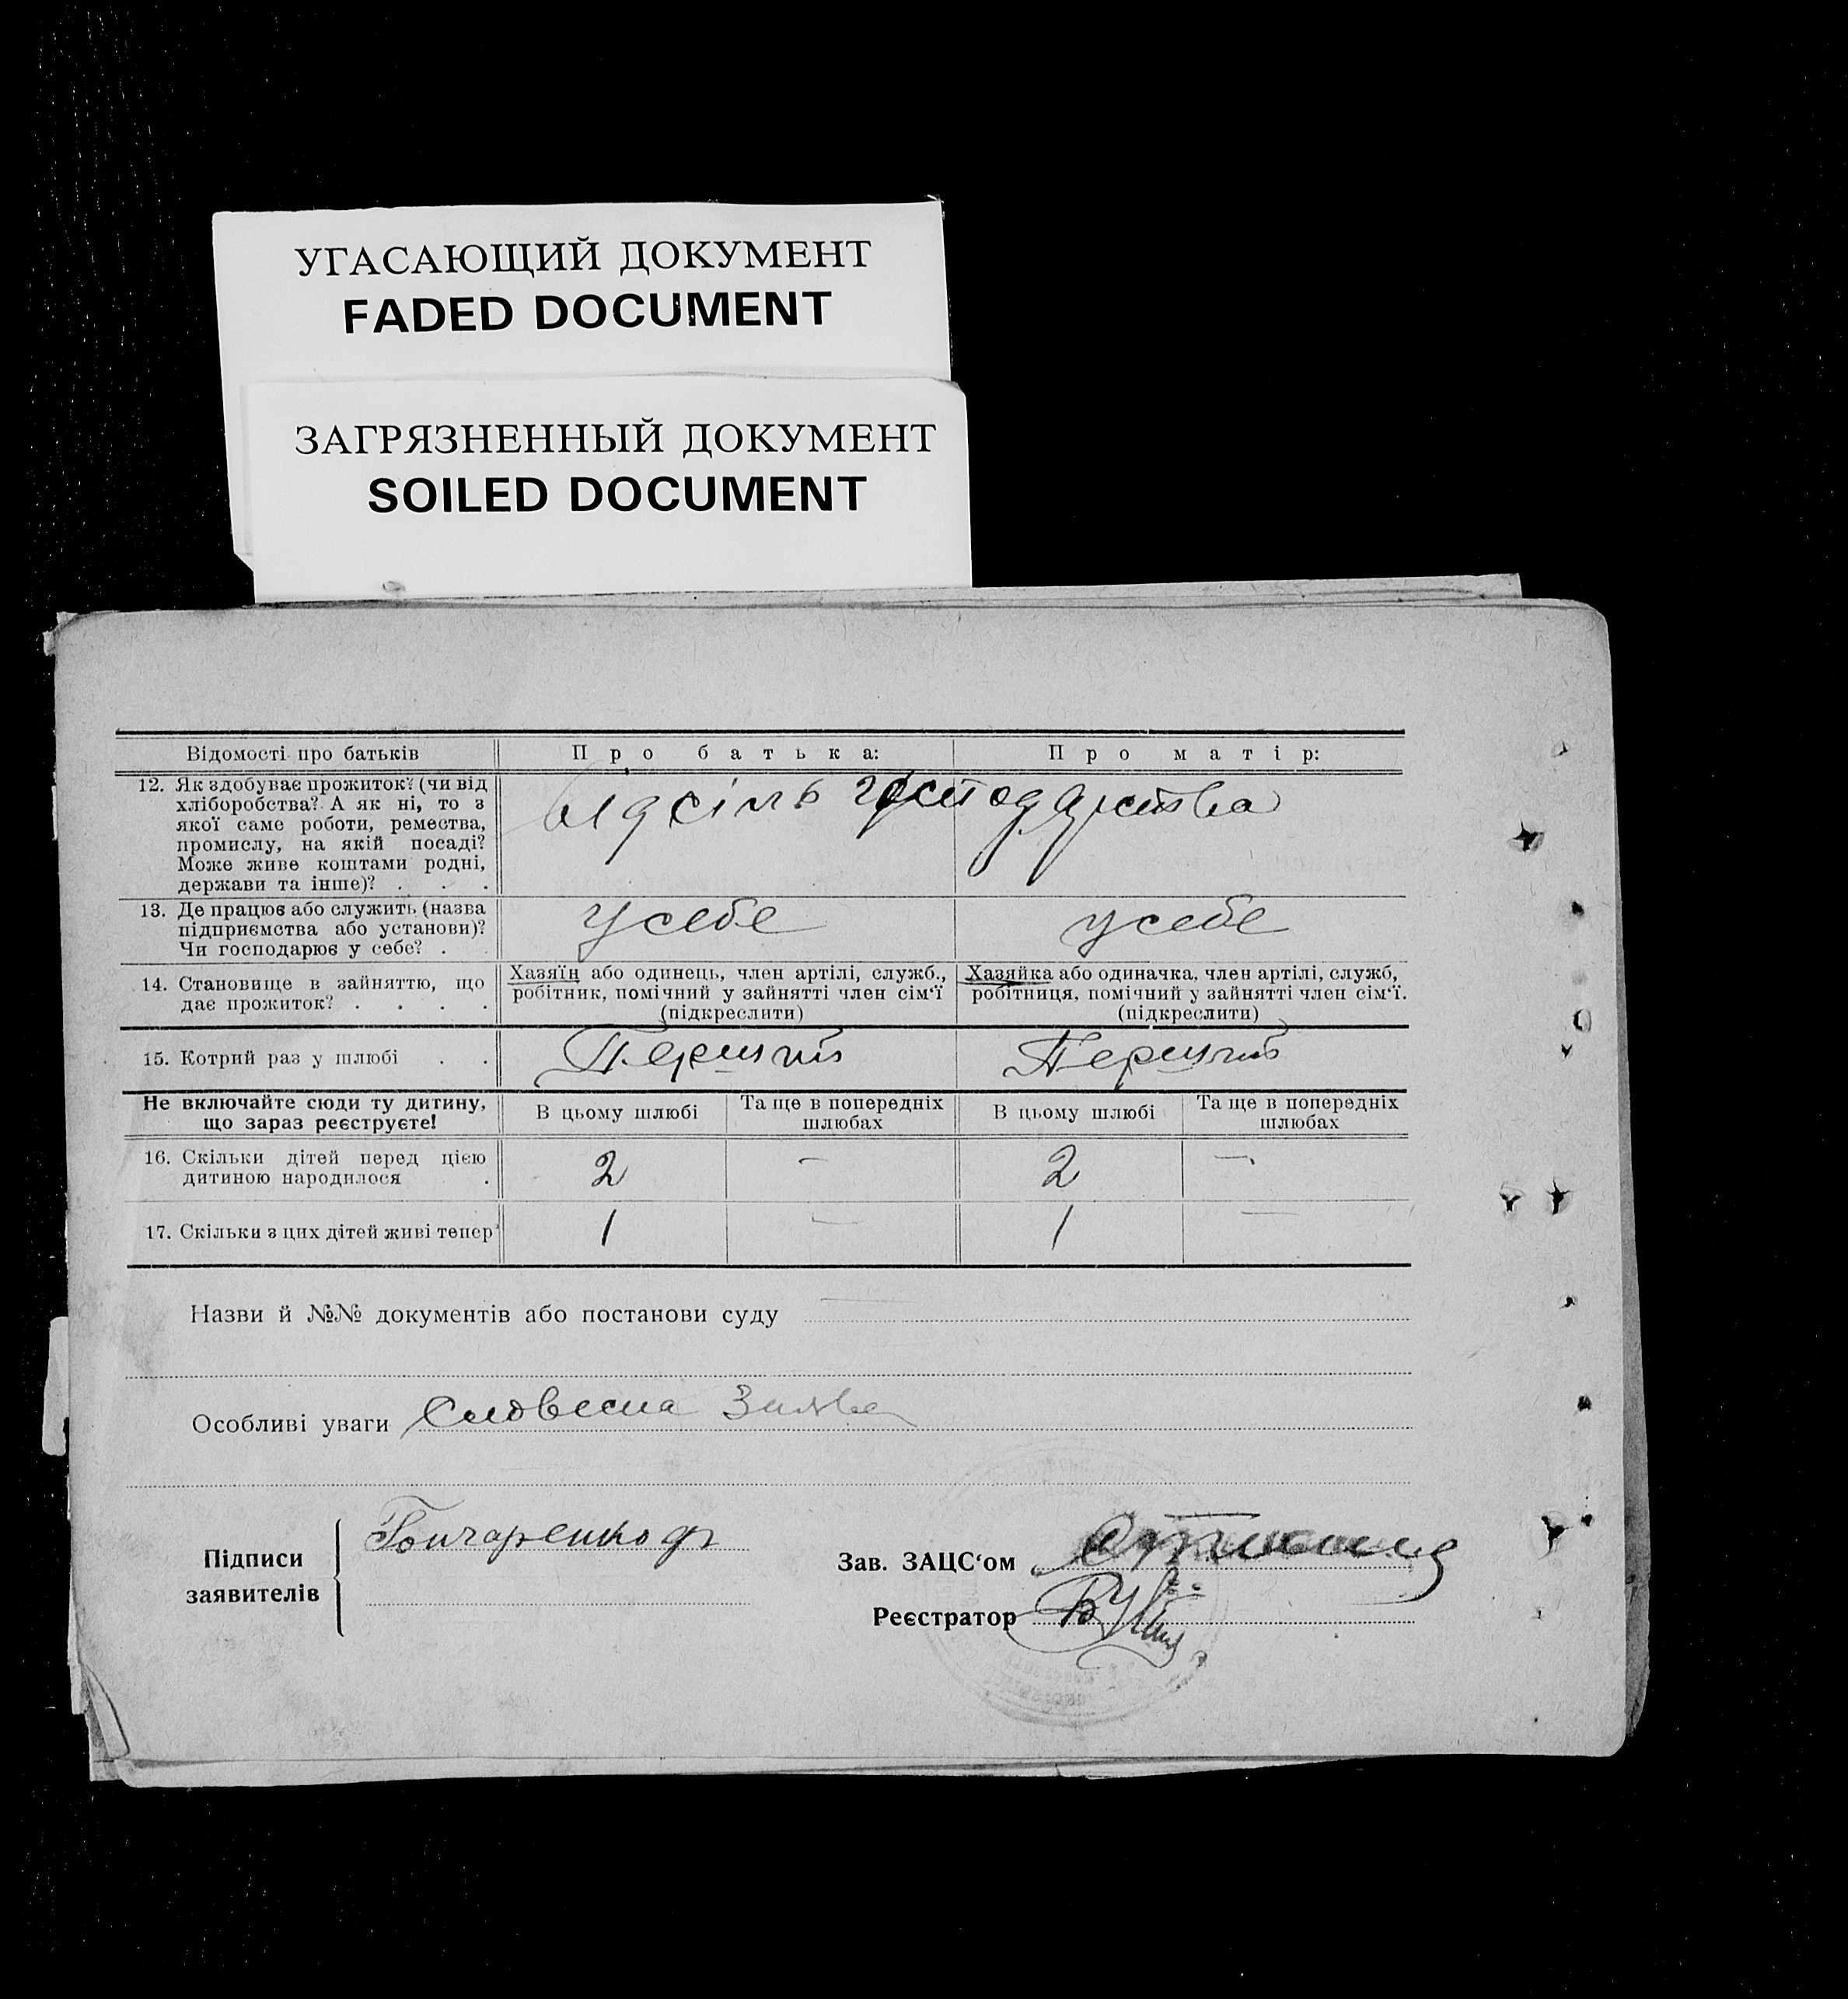 УГАСАЮЩИЙ ДОКУМЕНТ
FADED DOCUMENT
ЗАГРЯЗНЕННЫЙ ДОКУМЕНТ
SOILED DOCUMENT
Відомості про батьків
Про батька:
Про матір:
12. Як здобуває прожиток? (чи від
хліборобства? А як ні, то з
якої саме роботи, ремества,
промислу, на якій посаді?
Може живе коштами родні,
держави та інше)? . . .
від сіль господарства
13. Де працює або служить (назва
підприємства або установи)?
Чи господарює у себе? . .
у себе
у себе
14. Становище в зайняттю, що
дає прожиток? . . . .
Хазяїн або одинець, член артілі, служб.,
робітник, помічний у зайнятті член сім‘ї
(підкреслити)
Хазяйка або одиначка, член артілі, служб,
робітниця, помічний у зайнятті член сім‘ї.
(підкреслити)
15. Котрий раз у шлюбі . .
Перший
Перший
Не включайте сюди ту дитину,
що зараз реєструєте!
В цьому шлюбі
Та ще в попередніх
шлюбах
В цьому шлюбі
Та ще в попередніх
шлюбах
16. Скільки дітей перед цією
дитиною народилося .
2
—
2
—
17. Скільки з цих дітей живі тепер
1
—
1
—
Назви й №№ документів або постанови суду
Особливі уваги Словесна Заява
Підписи
заявителів
Гончаренко
Зав. ЗАЦС‘ом
Реєстратор